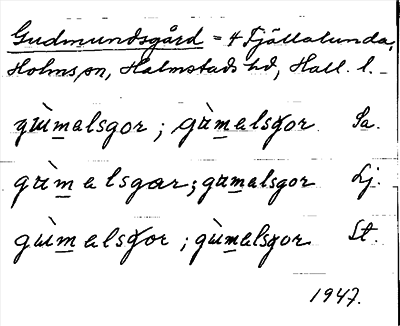 Gudmundsgård = 4 Fjällalunda,
Holms sn, Halmstads hd, Hall. l.
gùmalsgor ; gùmalsgor Sa.
gùmalsgor; gumalsgor Lj.
gùmalsgor ; gùmalsgor St.
1947.